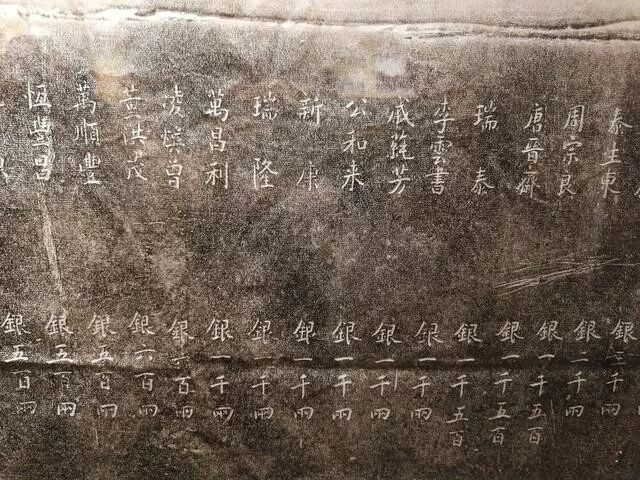 泰生東
周宗良
唐晉齋
瑞泰
李雲書
戚蒓芳
公和来
新康
瑞隆
萬昌利
凌煥曾
黃洪茂
萬順豐
恆豐昌
銀二千兩
銀二千兩
銀一千五百
銀一千五百
銀一千五百
銀一千兩
銀一千兩
銀一千兩
銀一千兩
銀一千兩
銀一千兩
銀六百兩
銀六百兩
銀五百兩
銀五百兩
銀五百兩